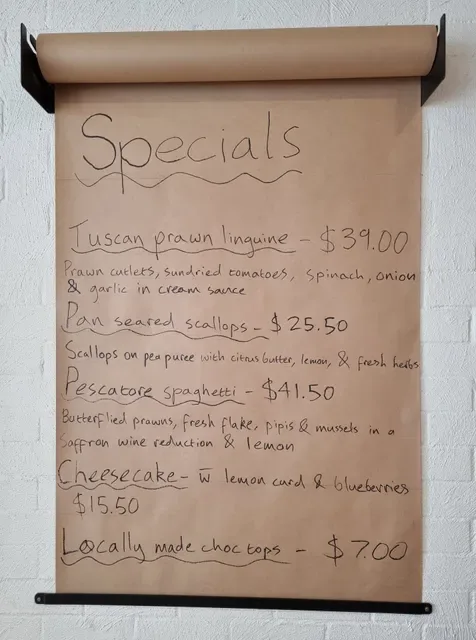 Specials
Tuscan prawn linguine - $39.00
Prawn cutlets, sundried tomatoes, spinach, onion
& garlic in cream sauce
Pan seared scallops - $25.50
Scallops on pea puree with citrus butter, lemon, & fresh herbs
Pescatore spaghetti - $41.50
Butterflied prawns, fresh flake, pipis & mussels in a
Saffron wine reduction & lemon
Cheesecake - w̅ lemon curd & blueberries
$15.50
Locally made choc tops - $7.00